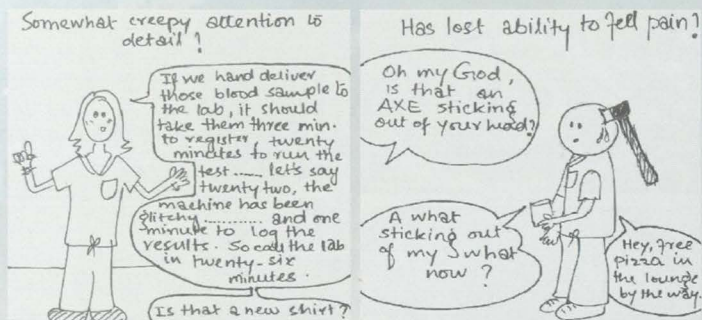 Somewhat creepy attention to
detail?
If we hand deliver
those blood sample to
the lab, it should
take them three min.
to register, twenty
minutes to run the
test ...... let's say
twenty two, the
machine has been
glitchy ............ and one
minute to log the
results. So call the lab
in twenty-six
minutes.
Is that a new shirt?
Has lost ability to fell pain?
Oh my God,
is that an
AXE sticking
out of your head?
A what
sticking out
of my what
now?
Hey, free
pizza in
the lounge
by the way.